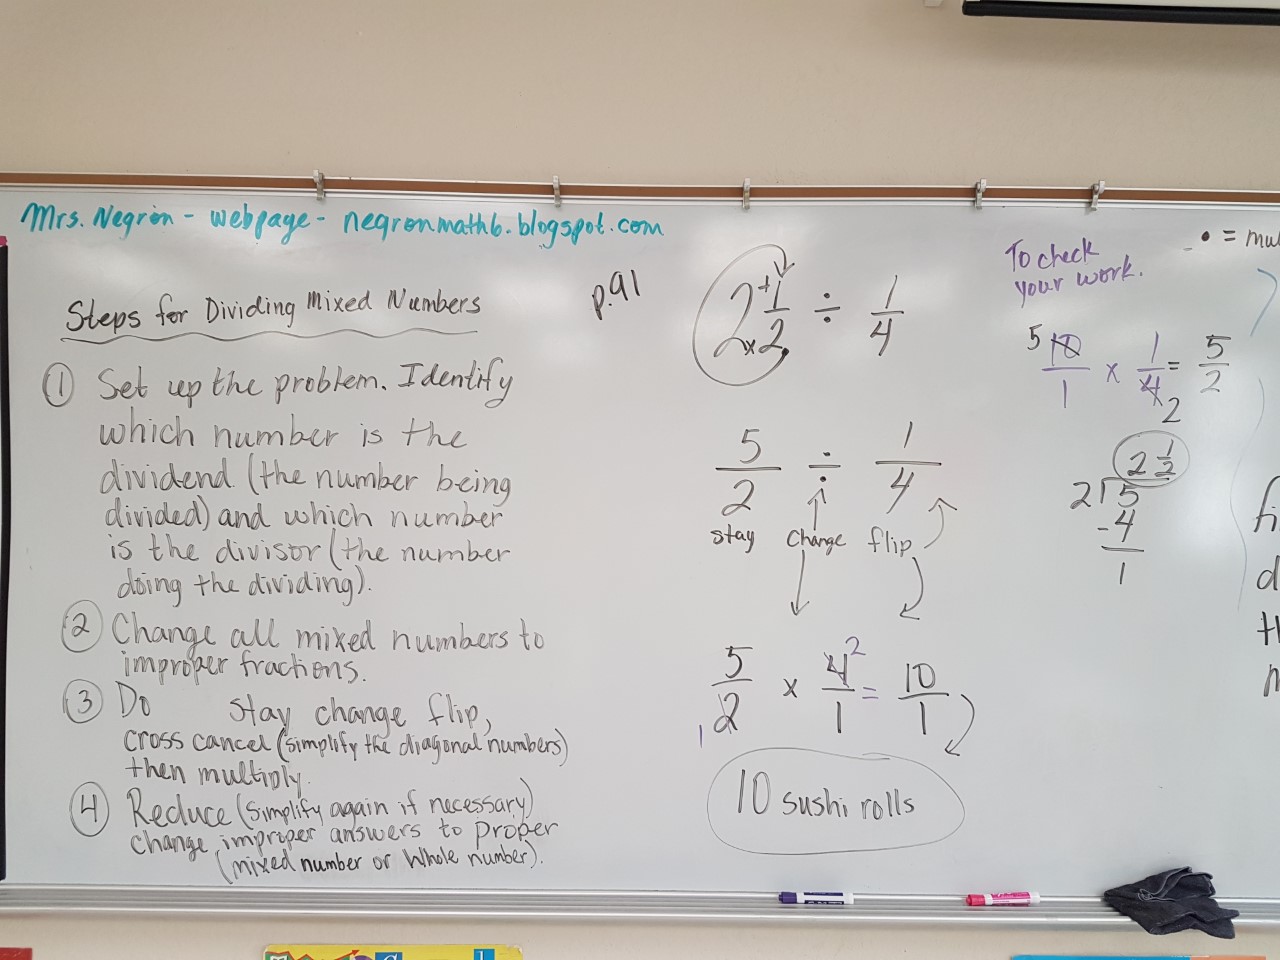 Mrs. Negron - webpage - negronmath6.blogspot.com
Steps for Dividing Mixed Numbers
p.91
① Set up the problem. Identify
which number is the
dividend (the number being
divided) and which number
is the divisor (the number
doing the dividing).
② Change all mixed numbers to
improper fractions.
③ Do stay change flip,
cross cancel (simplify the diagonal numbers)
then multiply.
④ Reduce (simplify again if necessary)
change improper answers to proper
(mixed number or whole number).
2 + 1/2 ÷ 1/4
x
5/2 ÷ 1/4
stay change flip
5/2 x 4/1 = 10/1
1 2
10 sushi rolls
To check
your work.
5 10/1 x 1/4 = 5/2
2
2 1/2
2 5
-4
1
• =